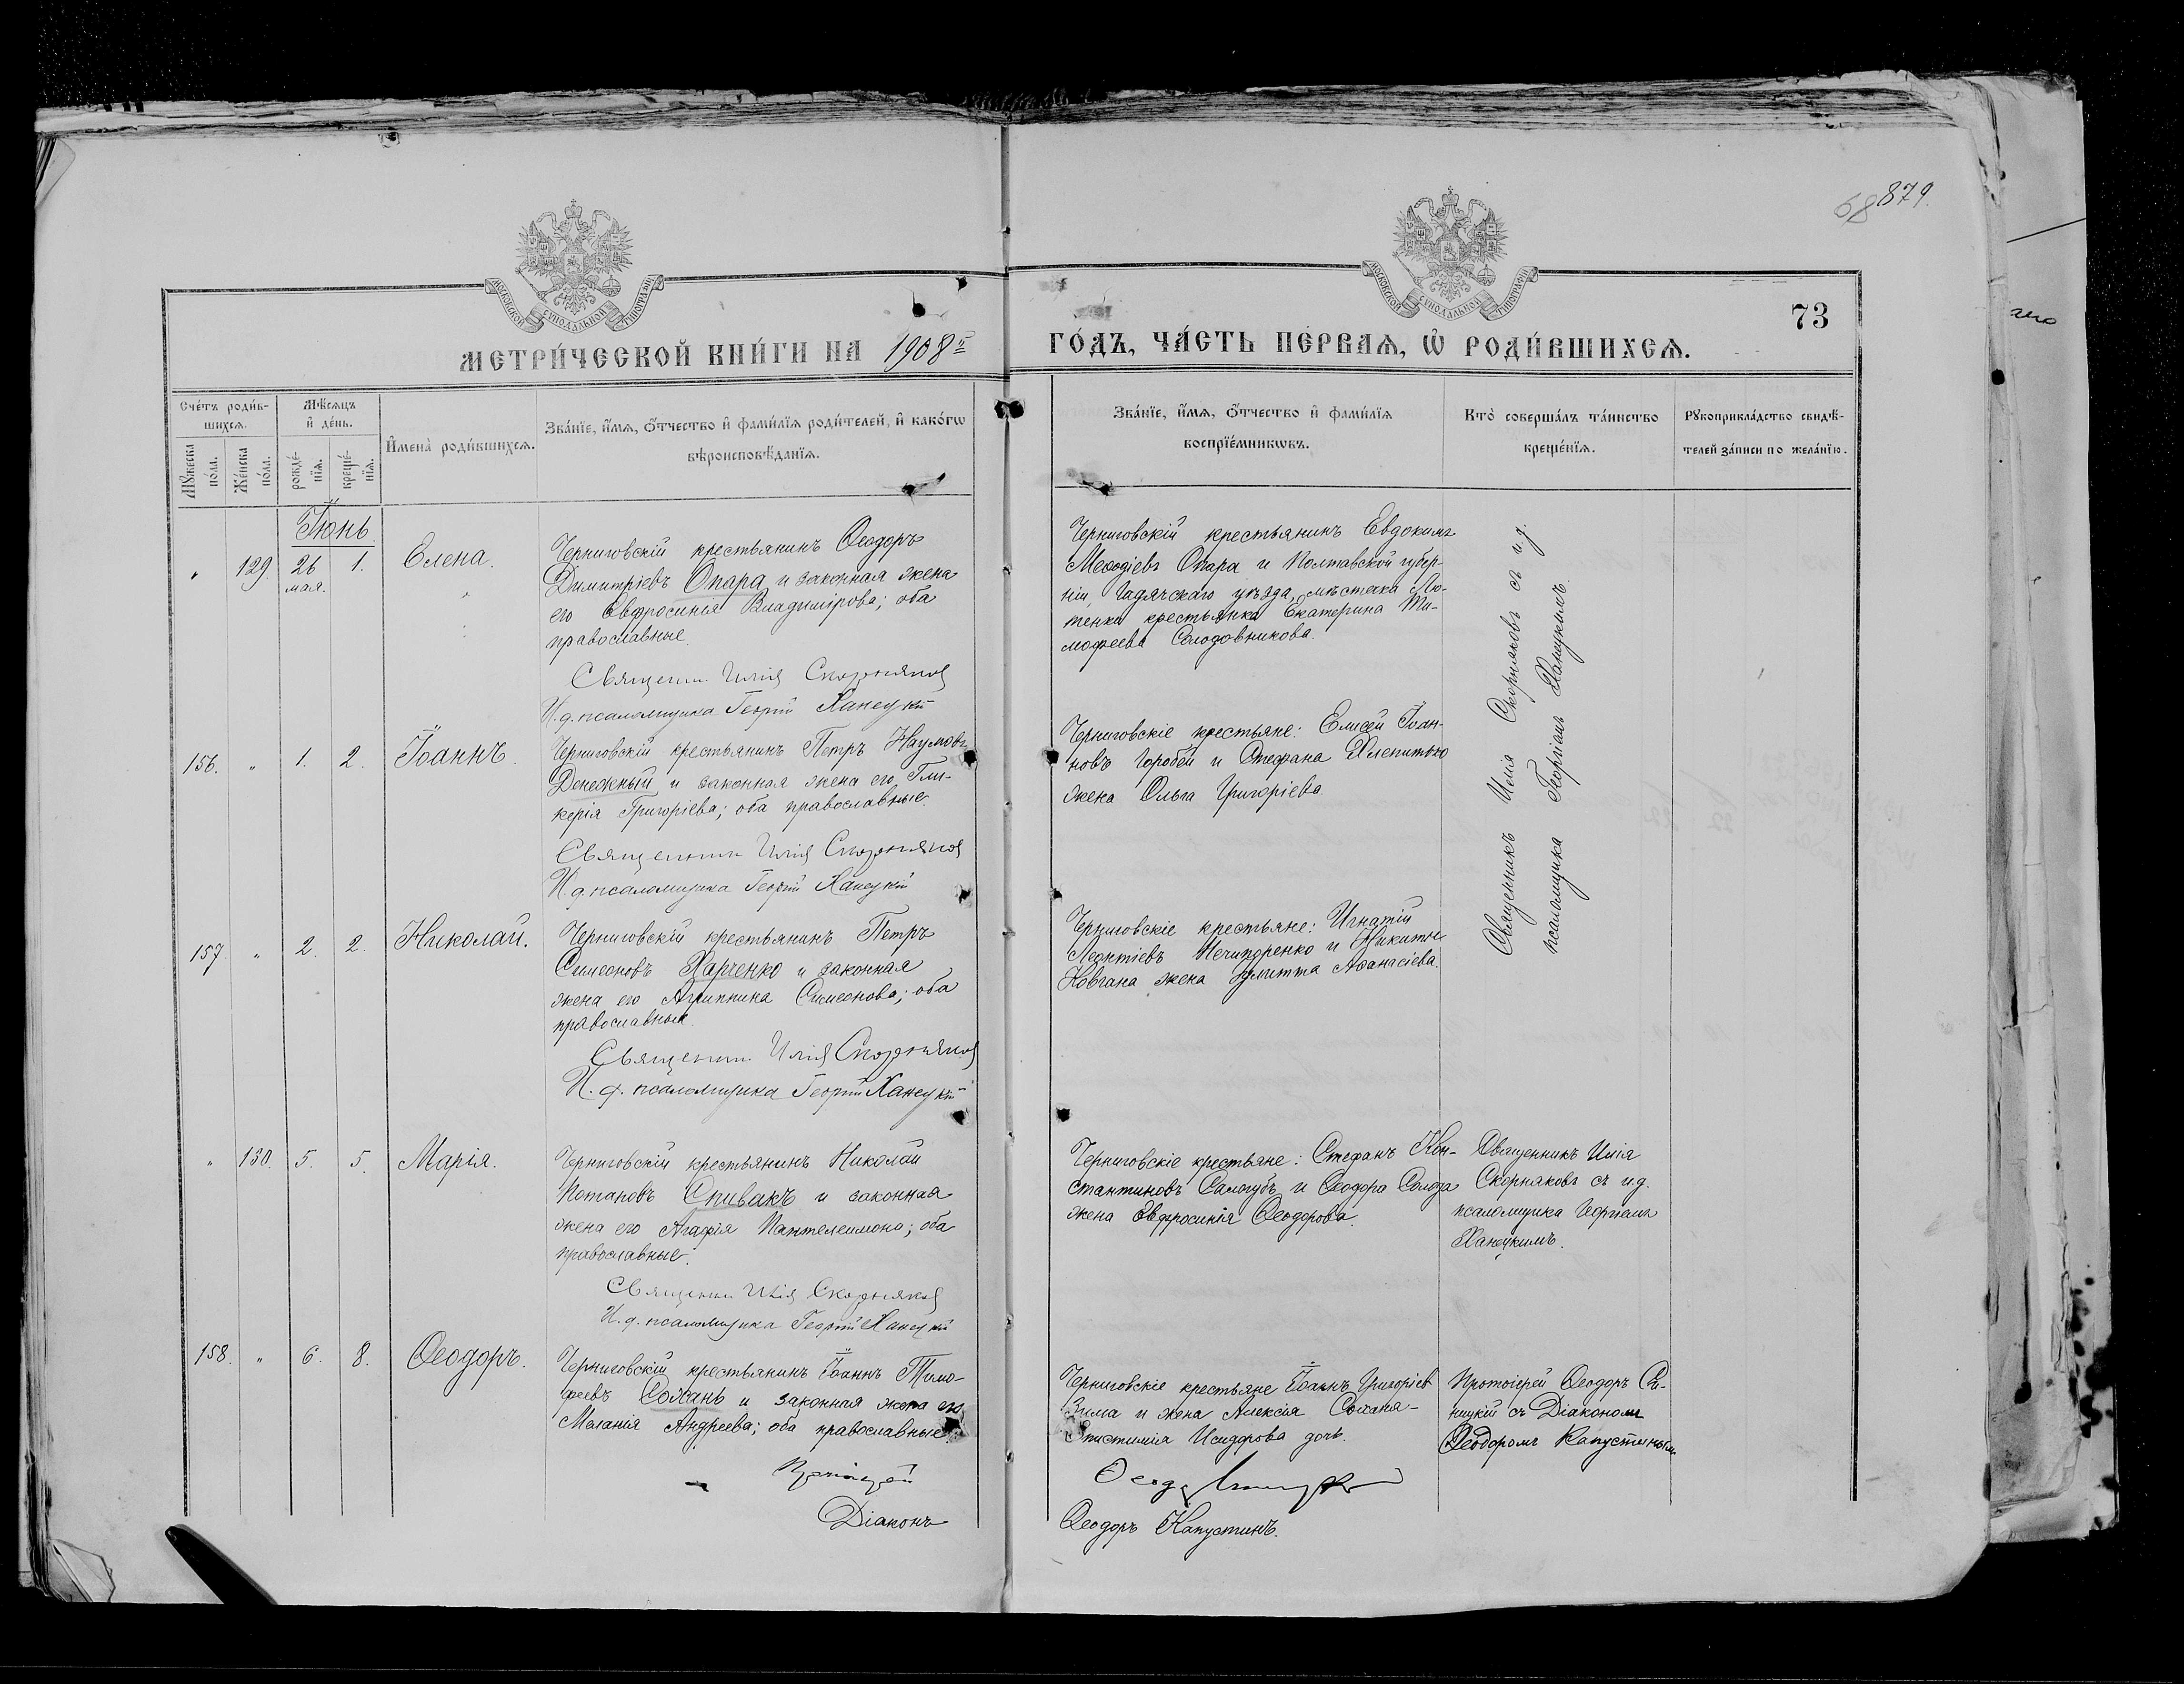 68 879.
МОСКОВСКОЙ СѴНОДАЛЬНОЙ ТИПОГРАФІИ
МОСКОВСКОЙ СѴНОДАЛЬНОЙ ТИПОГРАФІИ
73
МЕТРИ́ЧЕСКОЙ КНИ́ГИ НА 1908й ГО́ДЪ, ЧА́СТЬ ПЕ́РВАѦ, Ѡ҆ РОДИ́ВШИХСѦ.
Сче́тъ роди́в-
шихсѧ.
Мꙋ́жеска по́ла.
Же́нска по́ла.
Мѣ́сѧцъ
и҆ де́нь.
рожде́-
нїѧ.
креще́-
нїѧ.
И҆мена̀ роди́вшихсѧ.
Зва́нїе, и҆́мѧ, ѻ҆́тчество и҆ фами́лїѧ роди́телей, и҆ како́гѡ
вѣроисповѣ́данїѧ.
Зва́нїе, и҆́мѧ, ѻ҆́тчество и҆ фами́лїѧ
воспрїе́мникѡвъ.
Кто̀ соверша́лъ та́инство
креще́нїѧ.
Рꙋкоприкла́дство свидѣ́-
телей за́писи по жела́нїю.
Іюнь
" 129. 26 мая. 1. Елена.
Черниговскій крестьянинъ Ѳеодоръ
Димитріевъ Опара и законная жена
его Евфросинія Владимірова; оба
православные.
Священн. Илія Скорняков
И. д. псаломщика Георгій Ханецкій
Черниговскій крестьянинъ Евдокимъ
Меѳодіевъ Опара и Полтавской губер-
ніи, Гадячскаго уѣзда, мѣстечка Лю-
теньки крестьянка Екатерина Ти-
моѳеева Солодовникова.
Священникъ Илія Скорняковъ съ и. д.
псаломщика Георгіемъ Ханецкимъ.
156. " 1. 2. Іоаннъ.
Черниговскій крестьянинъ Петръ Наумовъ
Денежный и законная жена его Гли-
керія Григоріева; оба православные.
Священник Илія Скорняков
И. д. псаломщика Георгій Ханецкій
Черниговскіе крестьяне: Елисей Іоан-
новъ Горобей и Стефана
жена Ольга Григоріева
157. " 2. 2. Николай.
Черниговскій крестьянинъ Петръ
Симеоновъ Харченко и законная
жена его Агрипина Симеонова; оба
православные.
Священн. Илія Скорняков
И. д. псаломщика Георгій Ханецкій
Черниговскіе крестьяне: Игнатій
Леонтіевъ Нечипоренко и Никиты
Ковгана жена Улитта Аѳанасіева.
" 130. 5. 5. Марія.
Черниговскій крестьянинъ Николай
Потаповъ Спивакъ и законная
жена его Агафія Пантелеимона; оба
православные.
Священн. Илія Скорняков
И. д. псаломщика Георгій Ханецкій
Черниговскіе крестьяне: Стефанъ Кон-
стантиновъ Салогубъ и Ѳеодора Солода
жена Евфросинія Ѳеодорова.
Священникъ Илія
Скорняковъ съ и. д.
псаломщика Георгіемъ
Ханецкимъ.
158. " 6. 8. Ѳеодоръ.
Черниговскій крестьянинъ Іоаннъ Тимо-
феевъ Сохань и законная жена его
Меланія Андреева; оба православные.
Черниговскіе крестьяне Іоаннъ Григоріев
Зима и жена Алексія Соханя-
Епистимія Исидорова дочь.
Протоіерей Ѳеодоръ Си-
ницкій съ Діакономъ
Ѳеодоромъ Капустинымъ
Протоіерей
Діаконъ
Ѳеодоръ Капустинъ.